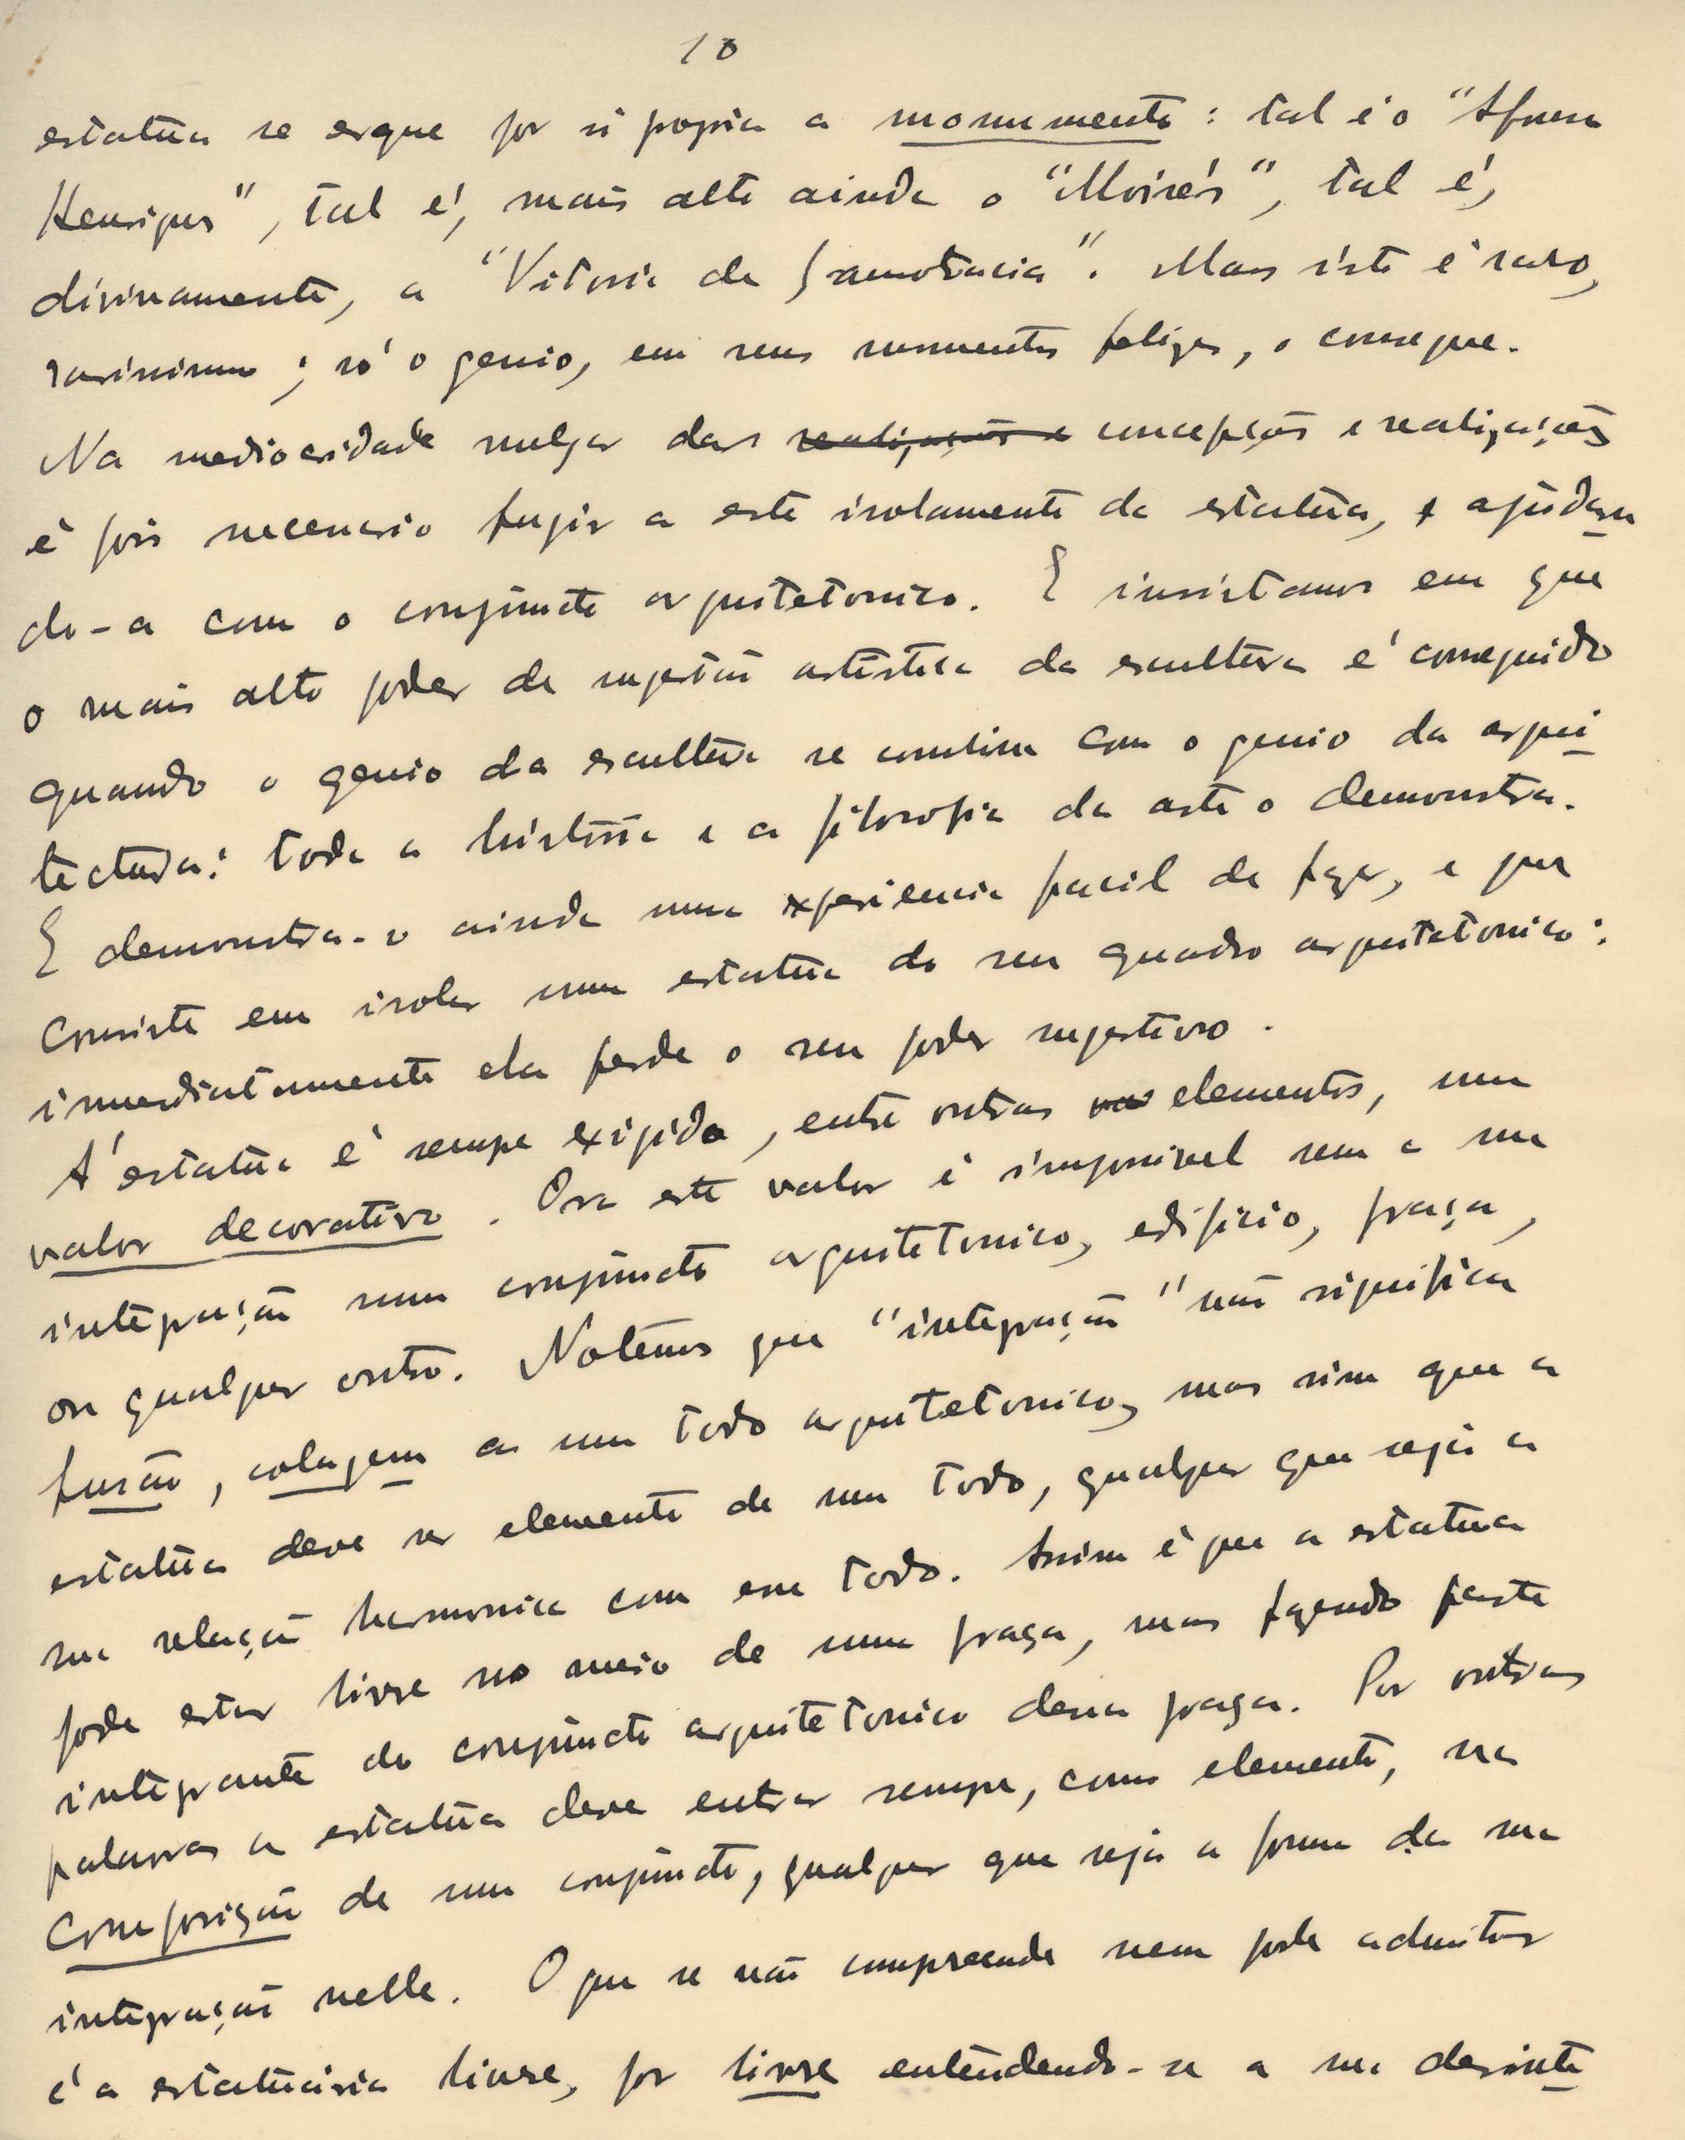 10
estatua se ergue por si propria a monumento : tal é o "Afonso
Henriques", tal é, mais alto ainda o "Moisés", tal é,
divinamente, a "Vitoria de Samotracia". Mas isto é raro,
rarissimo ; só o genio, em seus momentos felizes, o consegue.
Na mediocridade vulgar das realizações e concepções e realizações
é pois necessario fugir a este isolamento da estatua, e ajudan
do-a com o conjuncto arquitetonico. E insistamos em que
o mais alto poder de sugestão artistica da escultura é conseguido
quando o genio da escultura se combina com o genio da arqui
tectura: toda a história e a filosofia da arte o demonstra.
E demonstra-o ainda uma experiencia facil de fazer, e que
consiste em isolar uma estatua do seu quadro arquitetonico:
immediatamente ela perde o seu poder sugestivo.
A' estatua é sempre exigido, entre outros elementos, um
valor decorativo. Ora este valor é impossivel sem a sua
integração num conjuncto arquitetonico, edificio, praça,
ou qualquer outro. Notemos que "integração" não significa
fusão, colagem a um todo arquitetonico, mas sim que a
estatua deve ser elemento de um todo, qualquer que seja a
sua relação harmonica com esse todo. Assim é que a estatua
pode estar livre no meio de uma praça, mas fazendo parte
integrante do conjuncto arquitetonico dessa praça. Por outras
palavras a estatua deve entrar sempre, como elemento, na
composição de um conjuncto, qualquer que seja a forma da sua
integração nelle. O que se não compreende nem pode admitir
é a estatuária livre, por livre entendendo-se a sua desinte